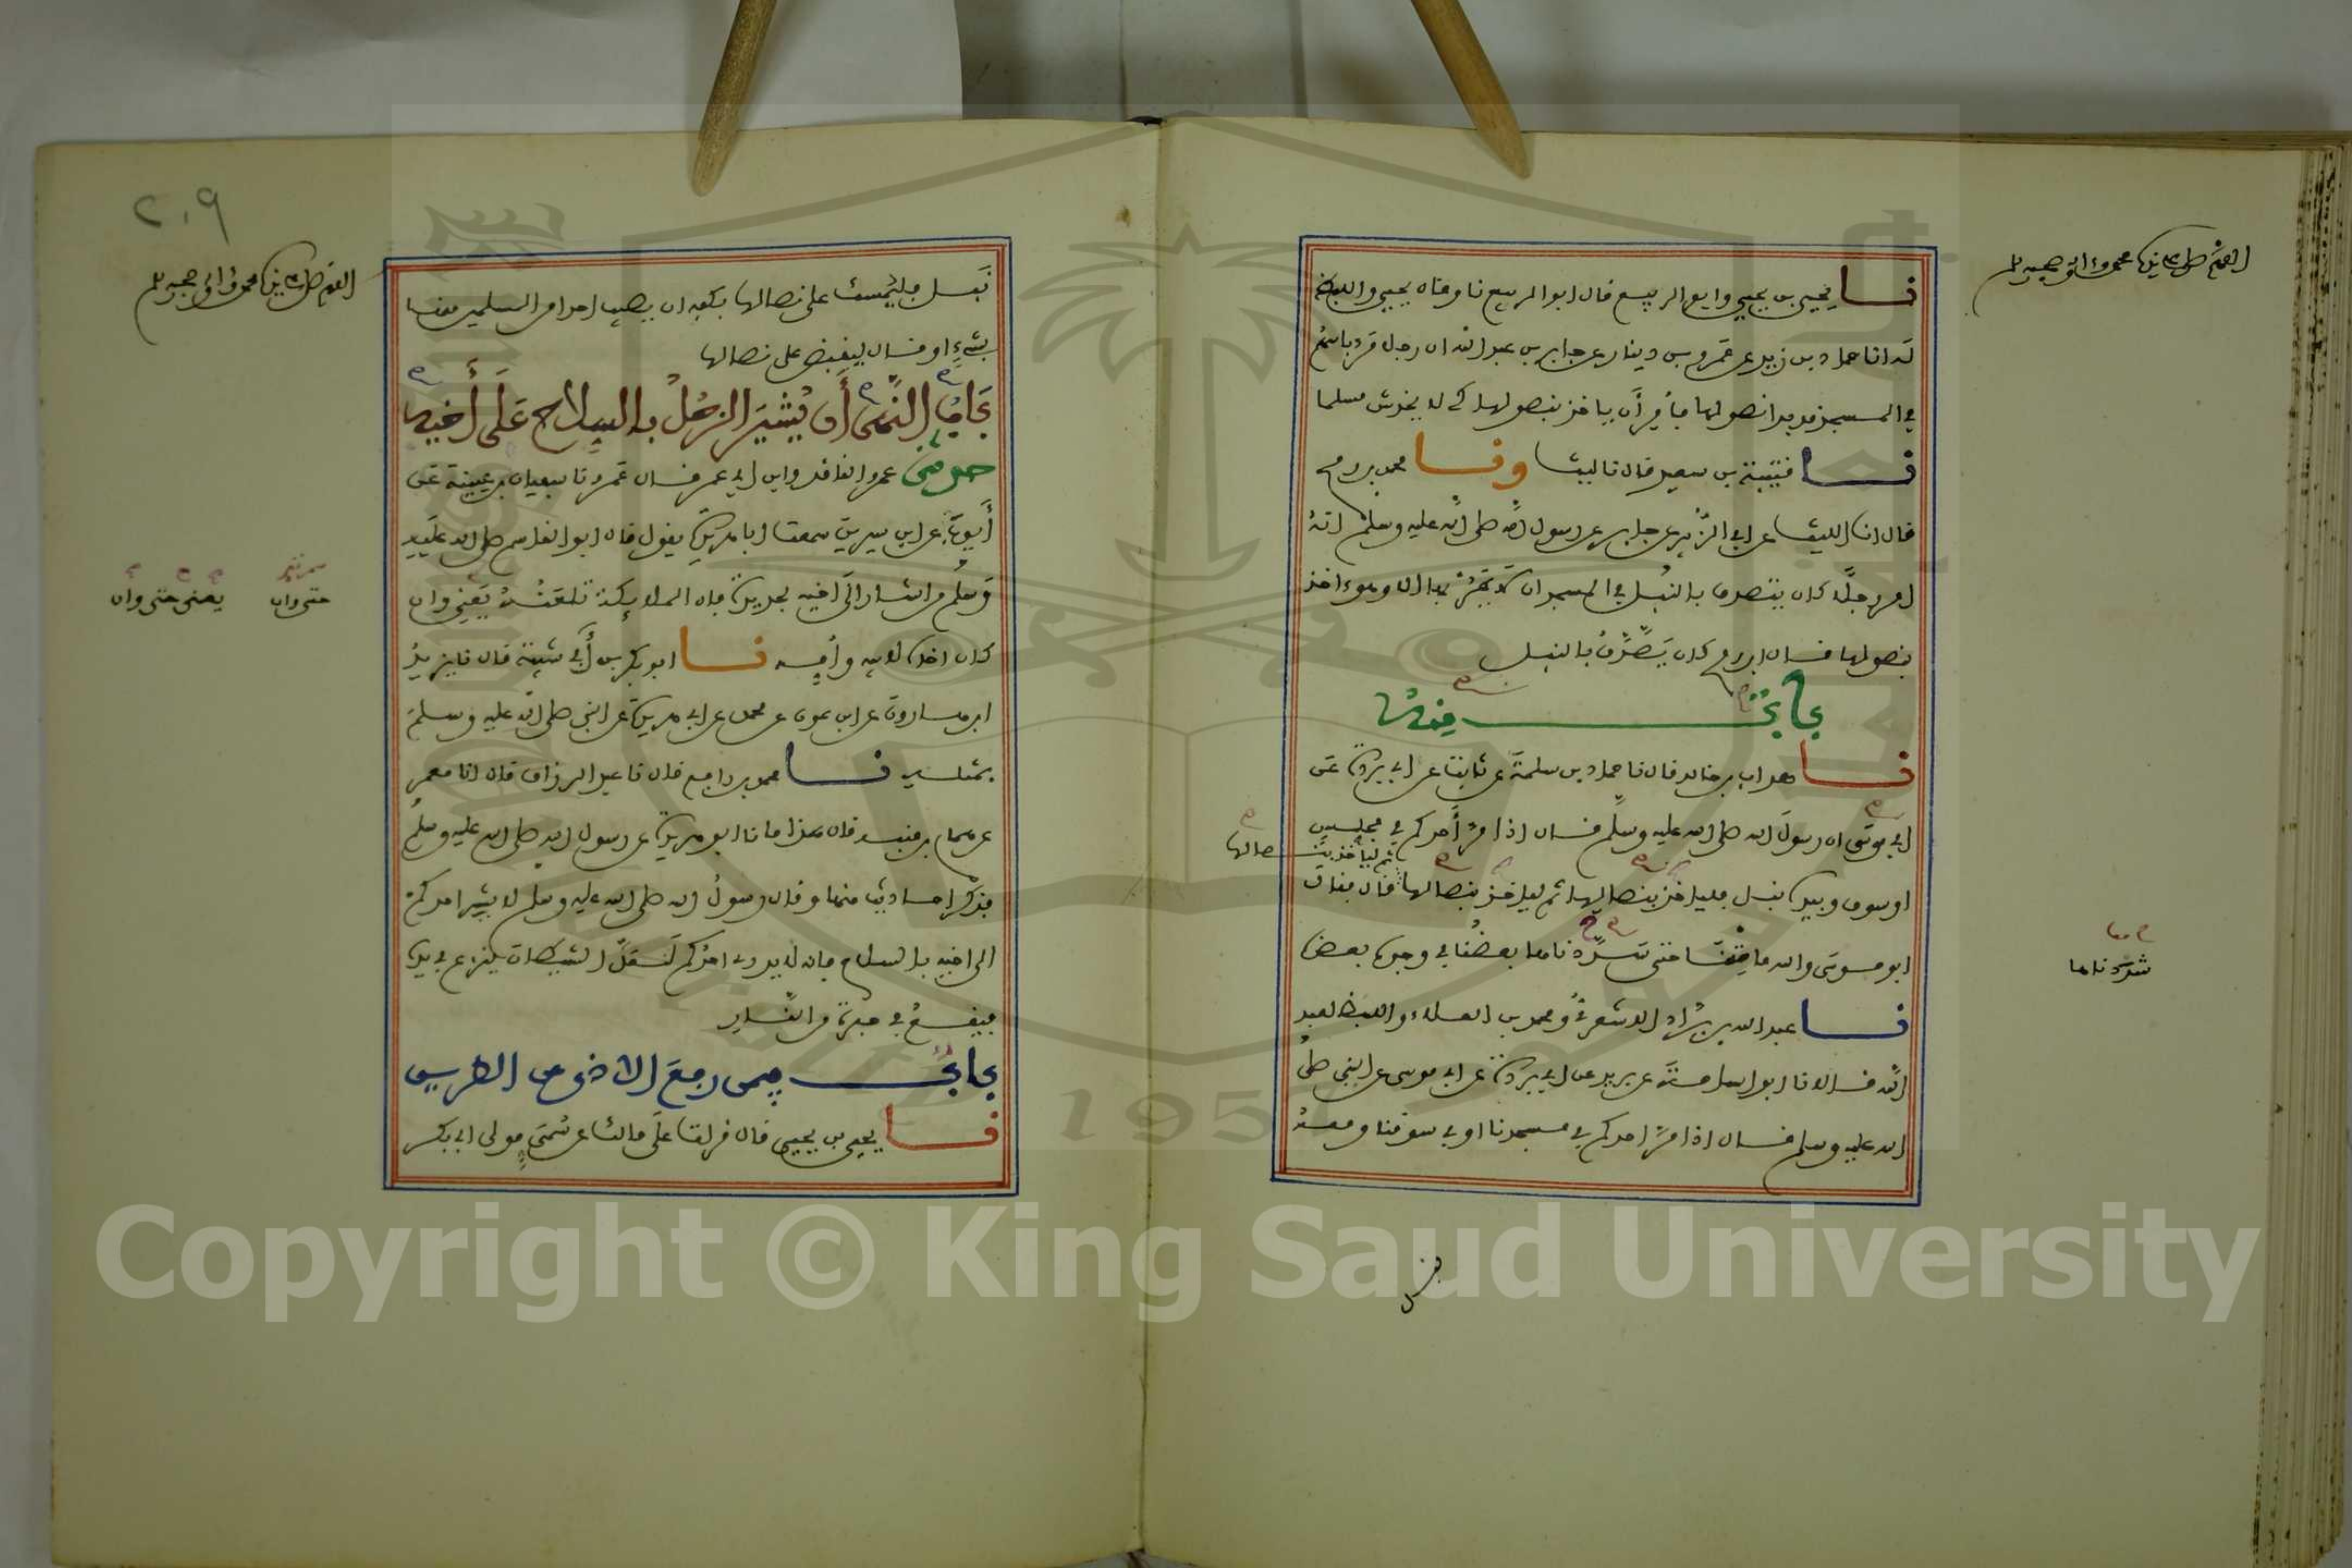 اللهم صل على سيدنا محمد وءاله وصحبه وسلم
نا يحيى بن يحيى وابو الربيع قال ابو الربيع نا وقال يحيى واللفظ
له انا حماد بن زيد عن عمرو بن دينار عن جابر بن عبد الله ان رجلا مر باسهم
في المسجد قد بدا نصولها فأمر أن ياخذ بنصولها كي لا يخدش مسلما
نا قتيبة بن سعيد قال نا ليث ونا محمد بن رمح
قال انا الليث عن ابي الزبير عن جابر عن رسول الله صلى الله عليه وسلم انه
امر رجلا كان يتصدق بالنبل في المسجد ان لا يمر بها الا وهو ءاخذ
بنصولها وقال ابن رمح كان يصدق بالنبل
باب منه
نا هداب بن خالد قال نا حماد بن سلمة عن ثابت عن ابي بردة عن
ابي موسى ان رسول الله صلى الله عليه وسلم قال اذا مر أحدكم في مجلس
ثم لياخذ بنصالها
او سوق وبيده نبل فلياخذ بنصالها ثم لياخذ بنصالها قال فقال
ابو موسى والله ما متنا حتى سددناها بعضنا في وجوه بعض
شددناها
نا عبد الله بن براد الاشعري ومحمد بن العلاء واللفظ لعبد
الله قالا نا ابو اسامة عن بريد عن ابي بردة عن ابي موسى عن النبي صلى
الله عليه وسلم قال اذا مر احدكم في مسجدنا او في سوقنا ومعه
نبل
٢٠٩
اللهم صل على سيدنا محمد وءاله وصحبه وسلم
نبل فليمسك على نصالها بكفه ان يصيب احدا من المسلمين منها
بشيء او قال ليقبض على نصالها
باب النهي أن يشير الرجل بالسلاح على أخيه
حدثني عمرو الناقد وابن ابي عمر قال عمرو نا سفيان بن عيينة عن
أيوب عن ابن سيرين سمعت ابا هريرة يقول قال ابو القاسم صلى الله عليه
وسلم من اشار الى اخيه بحديدة فان الملائكة تلعنه يعني وان
حتى وان يعني حتى وان
كان اخاه لابيه وأمه نا ابو بكر بن أبي شيبة قال نا يزيد
ابن هارون عن ابن عون عن محمد عن ابي هريرة عن النبي صلى الله عليه وسلم
بمثله نا محمد بن رافع قال نا عبد الرزاق قال انا معمر
عن همام بن منبه قال هذا ما نا ابو هريرة عن رسول الله صلى الله عليه وسلم
فذكر احاديث منها وقال رسول الله صلى الله عليه وسلم لا يشير احدكم
الى اخيه بالسلاح فانه لا يدري احدكم لعل الشيطان ينزع في يده
فيقع في حفرة من النار
باب فيمن رفع الاذى عن الطريق
نا يحيى بن يحيى قال قرات على مالك عن سمي مولى ابي بكر
Copyright © King Saud University
1957